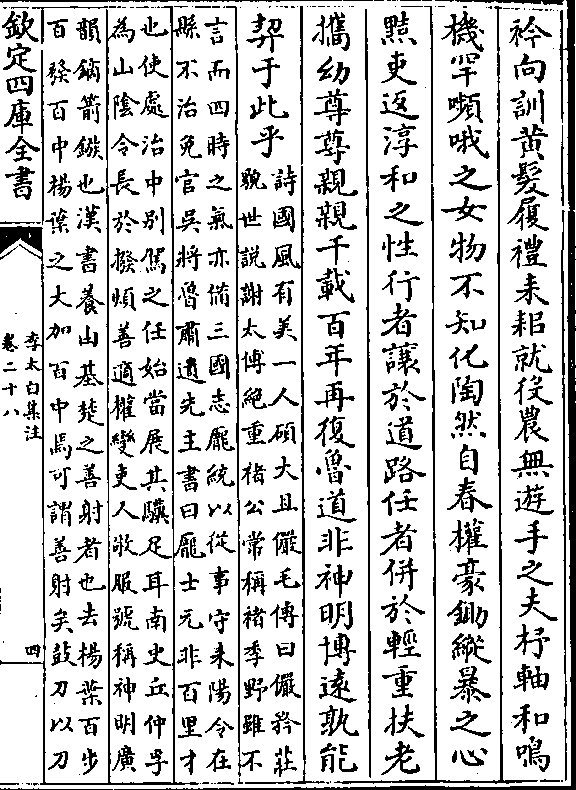 衿向訓黄髮履禮耒耜就役農無遊手之夫杼軸和鳴
機罕嚬哦之女物不知化陶然自春權豪鋤縱暴之心
黠吏返淳和之性行者讓於道路任者併於輕重扶老
攜幼尊尊親親千載百年再復魯道非神明博遠孰能
契于此乎
詩國風有美一人碩大且儼毛傳曰儼矜莊
貌世説謝太傅絶重褚公常稱褚季野雖不
言而四時之氣亦備三國志龐統以從事守耒陽令在
縣不治免官吳將魯肅遺先主書曰龐士元非百里才
也使處治中别駕之任始當展其驥足耳南史丘仲孚
為山陰令長於撥煩善適權變吏人敬服號稱神明廣
韻鏑箭鏃也漢書養由基楚之善射者也去楊葉百步
百發百中楊葉之大加百中焉可謂善射矣鼓刀以刀
欽定四庫全書
李太白集注
卷二十八
四